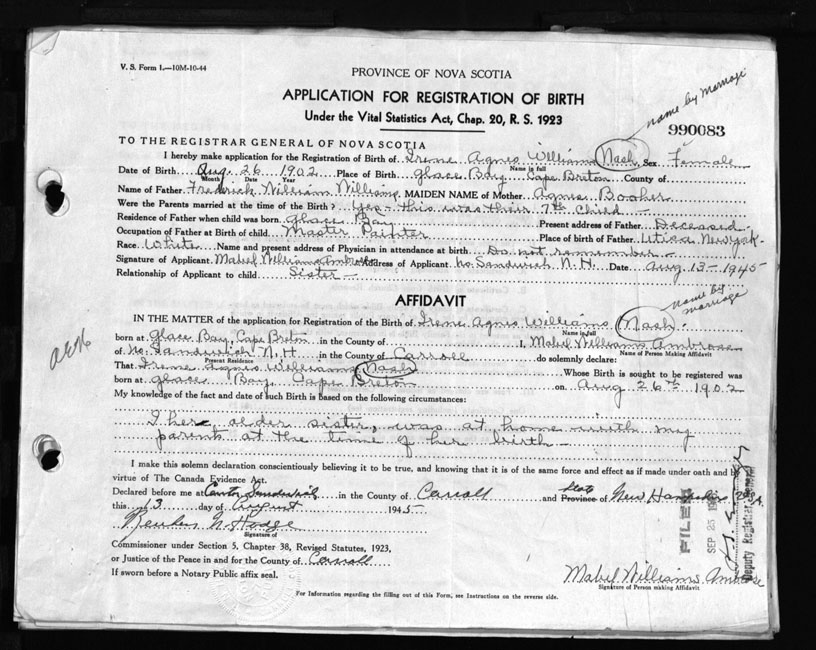 V. S. Form 1.—10M-10-44
PROVINCE OF NOVA SCOTIA
APPLICATION FOR REGISTRATION OF BIRTH
Under the Vital Statistics Act, Chap. 20, R. S. 1923
name by marriage
990083
TO THE REGISTRAR GENERAL OF NOVA SCOTIA
I hereby make application for the Registration of Birth of Irene Agnes Williams Nash, Sex Female
Name in full
Date of Birth Aug. 26 1902 Place of Birth Glace Bay Cape Breton County of
Month Date Year
Name of Father Fredrick William Williams MAIDEN NAME of Mother Agnes Booher
Were the Parents married at the time of the Birth? Yes - this was their 7th child
Residence of Father when child was born Glace Bay Present address of Father Deceased
Occupation of Father at Birth of child Master Painter Place of birth of Father Utica New York.
Race White Name and present address of Physician in attendance at birth Do not remember
Signature of Applicant Mabel Williams Ambrose Address of Applicant No. Sandwich N. H. Date Aug 13 - 1945
Relationship of Applicant to child Sister
AFFIDAVIT
name by marriage
IN THE MATTER of the application for Registration of the Birth of Irene Agnes Williams Nash.
Name in full
born at Glace Bay, Cape Breton in the County of I, Mabel Williams Ambrose
Name of Person Making Affidavit
of No. Sandwich N. H. in the County of Carroll do solemnly declare:
Present Residence
That Irene Agnes Williams Nash Whose Birth is sought to be registered was
born at Glace Bay Cape Breton on Aug 26th 1902
My knowledge of the fact and date of such Birth is based on the following circumstances:
I her older sister, was at home with my
parents at the time of her birth
I make this solemn declaration conscientiously believing it to be true, and knowing that it is of the same force and effect as if made under oath and by
virtue of The Canada Evidence Act.
Declared before me at Center Sandwich in the County of Carroll and State Province of New Hampshire
this 13 day of August 1945
Signature of
Commissioner under Section 5, Chapter 38, Revised Statutes, 1923,
or Justice of the Peace in and for the County of Carroll
If sworn before a Notary Public affix seal.
Mabel Williams Ambrose
Signature of Person making Affidavit
For Information regarding the filling out of this Form, see Instructions on the reverse side.
FILED
SEP 25
Deputy Registrar General